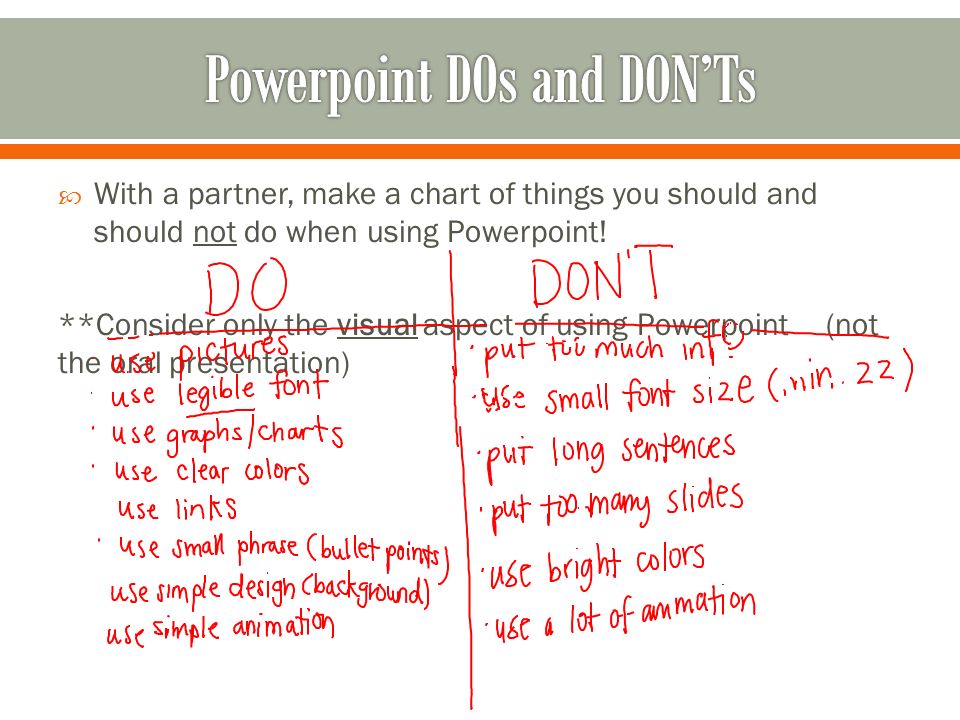 Powerpoint DOs and DON'Ts
With a partner, make a chart of things you should and
should not do when using Powerpoint!
DO
DON'T
**Consider only the visual aspect of using Powerpoint (not
the oral presentation)
use pictures
· use legible font
· use graphs/charts
· use clear colors
use links
· use small phrase (bullet points)
use simple design (background)
use simple animation
· put too much info
· use small font size (min. 22)
· put long sentences
· put too many slides
· use bright colors
· use a lot of animation